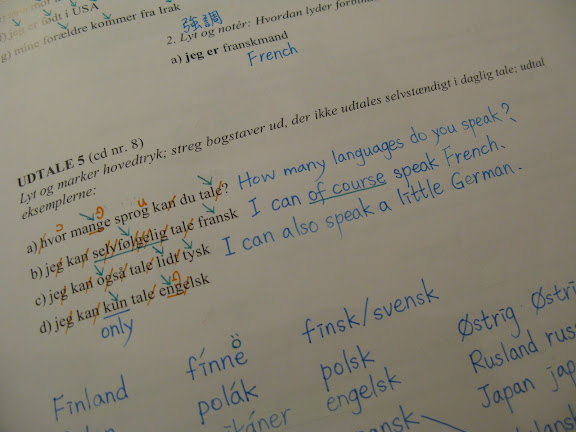 f) jeg er født i USA
g) mine forældre kommer fra Irak
強調
2. Lyt og notér: Hvordan lyder
a) jeg er franskmand
French
UDTALE 5 (cd nr. 8)
Lyt og marker hovedtryk; streg bogstaver ud, der ikke udtales selvstændigt i daglig tale; udtal
eksemplerne:
a) hvor mange sprog kan du tale? How many languages do you speak?
b) jeg kan selvfølgelig tale fransk I can of course speak French.
c) jeg kan også tale lidt tysk I can also speak a little German.
d) jeg kan kun tale engelsk
only
Finland finne ö finsk/svensk Østrig Østri
polák polsk Rusland rus
engelsk Japan jap